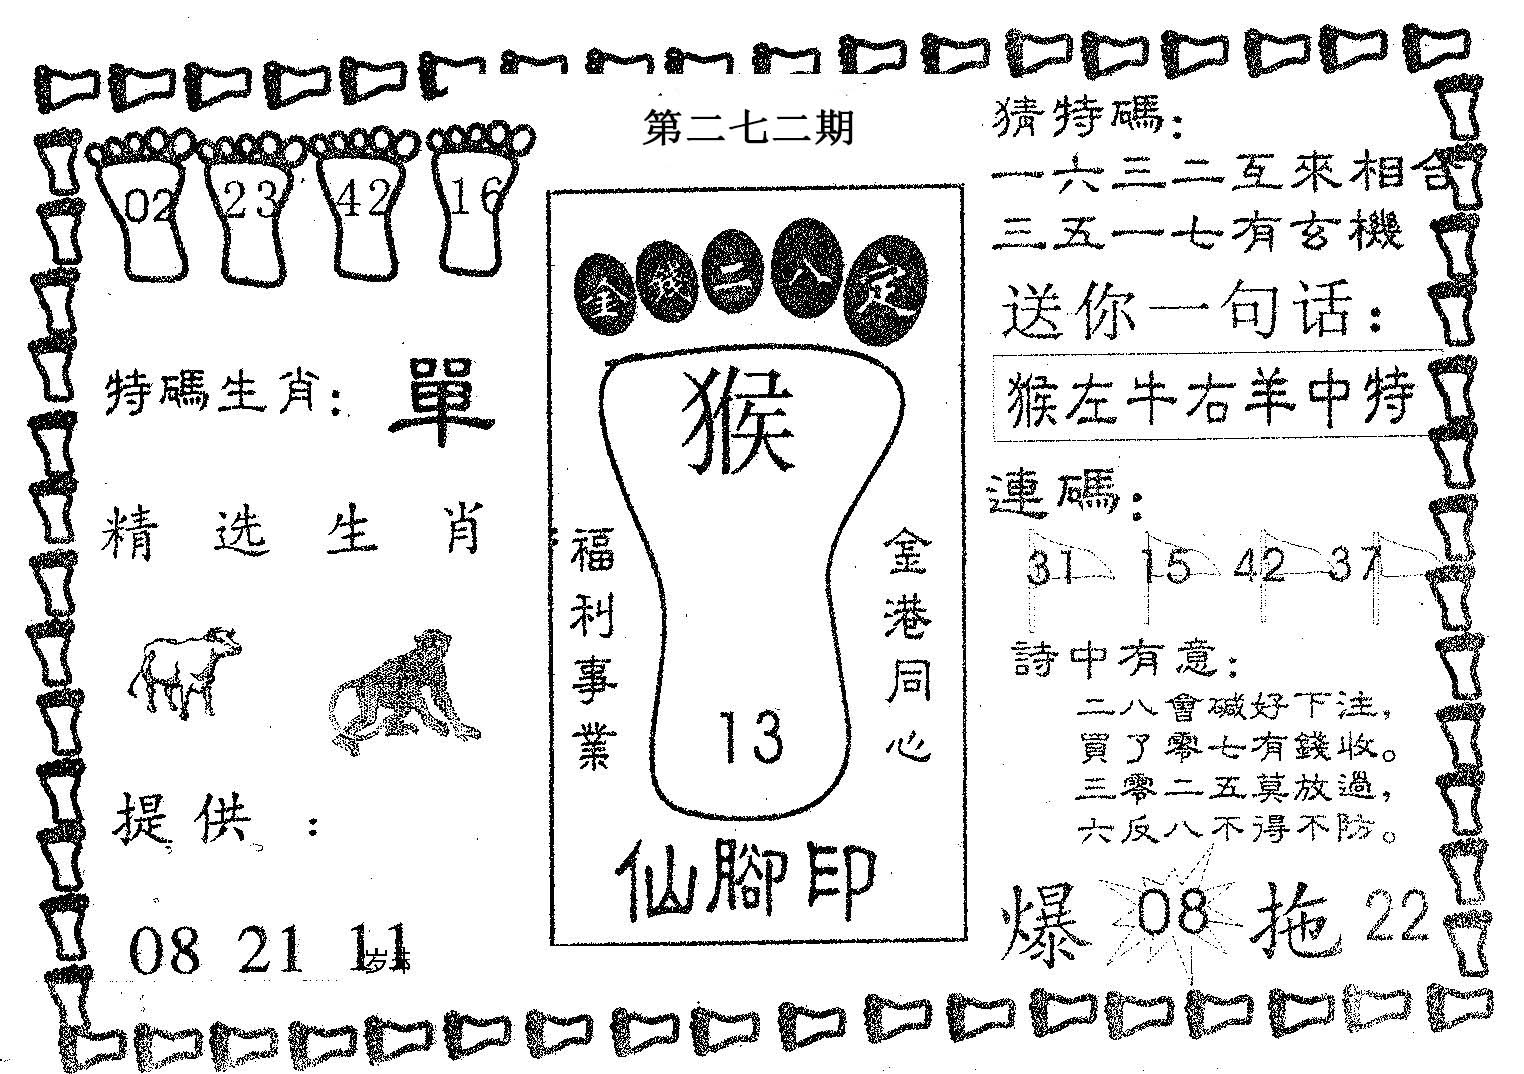 第二七二期
02 23 42 16
特碼生肖：單
精选生肖：
提供：
08 21 11
金錢二八定
猴
福利事業
金港同心
13
仙腳印
猜特碼：
一六三二互來相合
三五一七有玄機
送你一句话：
猴左牛右羊中特
連碼：
31 15 42 37
詩中有意：
二八會碱好下注，
買了零七有錢收。
三零二五莫放過，
六反八不得不防。
爆 08 拖 22